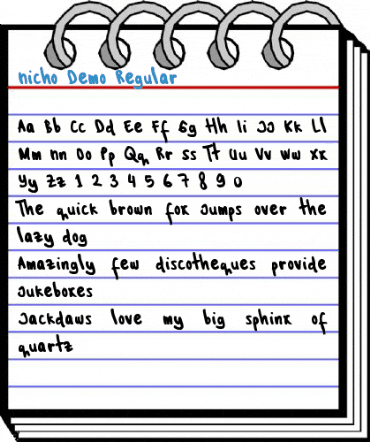 nicho Demo Regular
Aa Bb Cc Dd Ee Ff Gg Hh Ii Jj Kk Ll
Mm nn Oo Pp Qq Rr ss Tt uu Vv ww xx
Yy zz 1 2 3 4 5 6 7 8 9 0
The quick brown fox jumps over the
lazy dog
Amazingly few discotheques provide
jukeboxes
Jackdaws love my big sphinx of
quartz